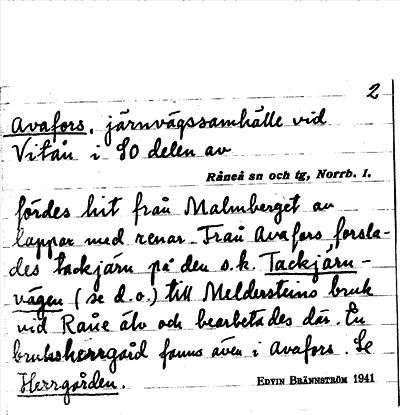 2
Avafors, järnvägssamhälle vid
Vitån i SO delen av
Råneå sn och tg, Norrb. l.
fördes hit från Malmberget av
lappar med renar. Från Avafors forsla-
des tackjärn på den s.k. Tackjärn-
vägen (se d.o.) till Meldersteins bruk
vid Råne älv och bearbetades där. En
bruksherrgård fanns även i Avafors. Se
Herrgården.
Edvin Brännström 1941